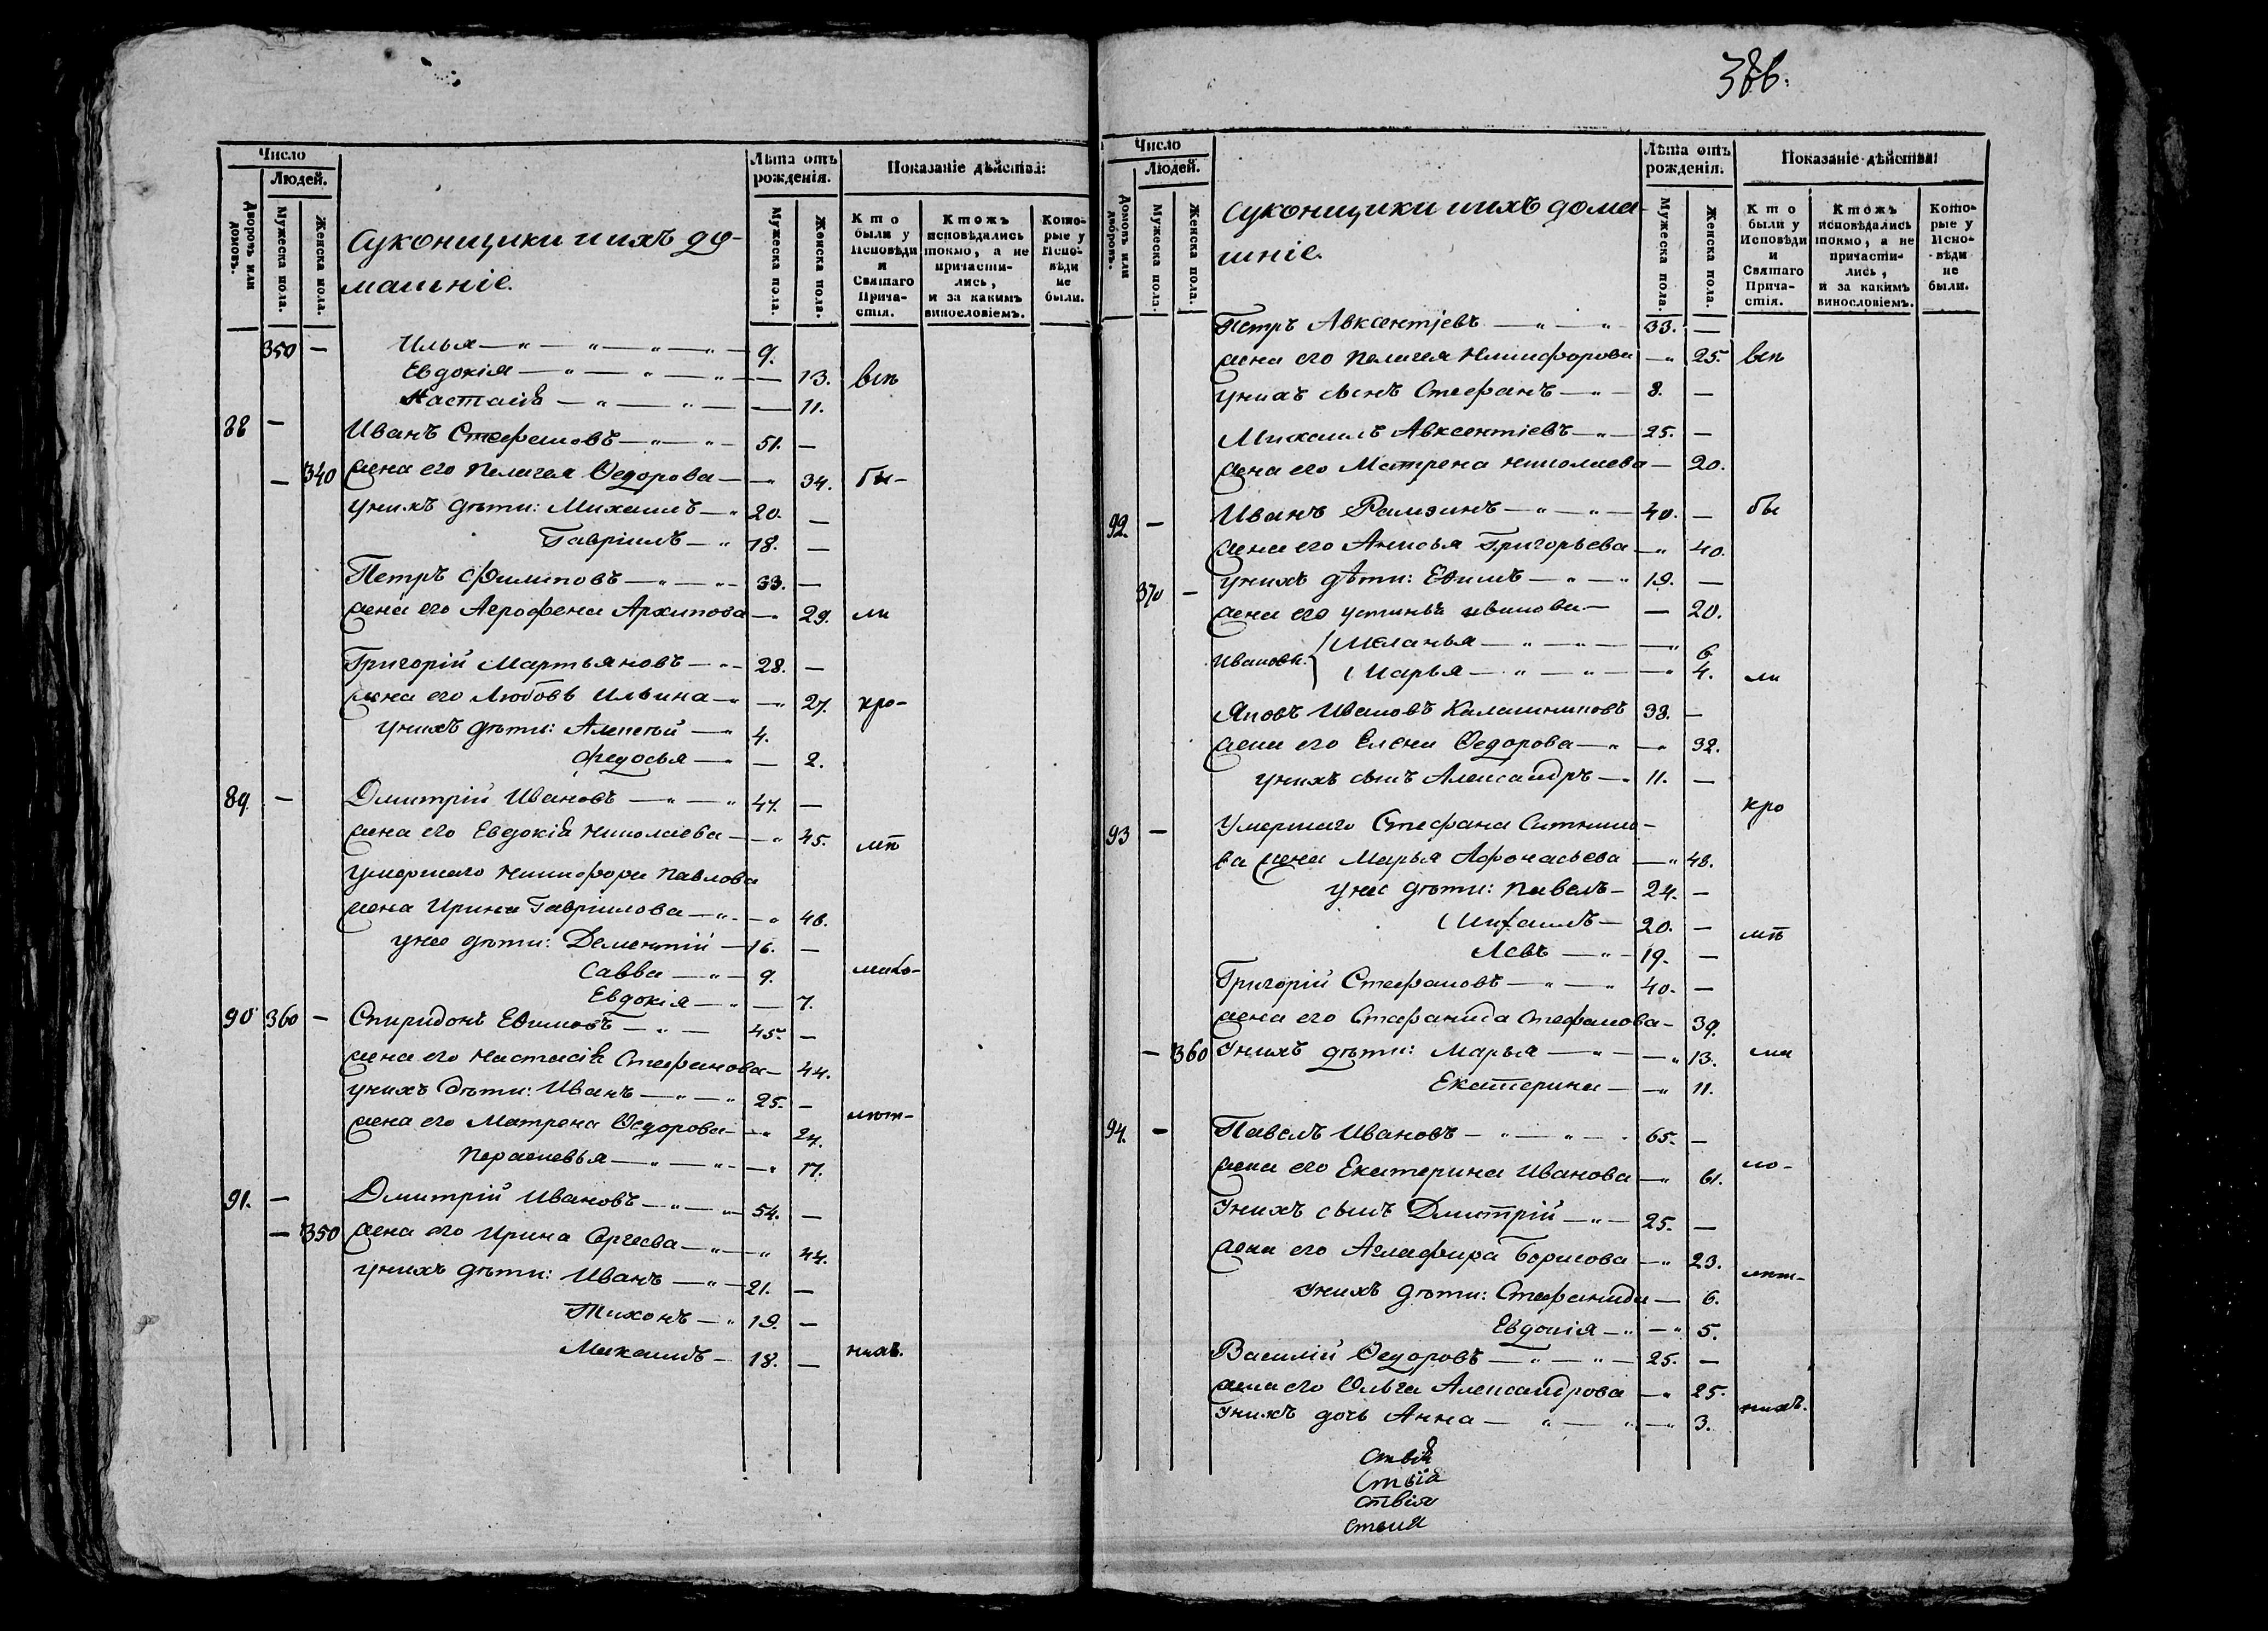 Число
Людей.
Дворовъ или домовъ.
Мужеска пола.
Женска пола.
Суконщики и ихъ до-
машніе.
Лѣта отъ рожденія.
Мужеска пола.
Женска пола.
Показаніе дѣйства:
Кто были у Исповѣди и Святаго Прича-стія.
Ктожъ исповѣдались токмо, а не причасти-лись, и за какимъ винословіемъ.
Кото-рые у Испо-вѣди не были.
350 — Илья — 9.
Евдокія — 13. всѣ
Настасія — 11.
88 — Иванъ Стефановъ — 51. —
— 340 жена его Пелагея Ѳедорова — 34. бы-
у нихъ дѣти: Михаилъ — 20. —
Гавріилъ — 18. —
Петръ Филиповъ — 33. —
жена его Агрофена Архипова — 29. ли
Григорій Мартьяновъ — 28. —
жена его Любовь Ильина — 27. кро-
у нихъ дѣти: Алексѣй — 4.
Федосья — 2.
89 — Дмитрій Ивановъ — 47. —
жена его Евдокія Николаева — 45. мѣ
умершаго Никифора Павлова
жена Ирина Гавріилова — 48.
у нее дѣти: Дементій — 16. —
Савва — 9.
Евдокія — 7.
90 360 — Спиридонъ Еѳимовъ — 45. —
жена его Настасія Стефанова — 44.
у нихъ дѣти: Иванъ — 25. —
жена его Матрена Ѳедорова — 24. лѣт-
Парасковья — 17.
91. — Дмитрій Ивановъ — 54. —
— 350 жена его Ирина Сергеева — 44.
у нихъ дѣти: Иванъ — 21. —
Тихонъ — 19. —
Михаилъ — 18. — нихъ.
386.
Число
Людей.
Домовъ или дворовъ.
Мужеска пола.
Женска пола.
Суконщики и ихъ дома-
шніе.
Лѣта отъ рожденія.
Мужеска пола.
Женска пола.
Показаніе дѣйства:
Кто были у Исповѣди и Святаго Прича-стія.
Ктожъ исповѣдались токмо, а не причасти-лись, и за какимъ винословіемъ.
Кото-рые у Испо-вѣди не были.
Петръ Авксентіевъ — 33. —
жена его Пелагея Никифорова — 25. всѣ
у нихъ сынъ Стефанъ — 8. —
Михаилъ Авксентіевъ — 25. —
жена его Матрена Николаева — 20.
92. — Иванъ Рамзинъ — 40. — бы
жена его Анисья Григорьева — 40.
370 — у нихъ дѣти: Еѳимъ — 19. —
жена его Устинья Иванова — 20.
Ивановы: Меланья — 6
Марья — 4. ли
Яковъ Ивановъ Калашниковъ 33. —
жена его Елена Ѳедорова — 32.
у нихъ сынъ Александръ — 11. —
кро
93 — Умершаго Стефана Ситнико-
ва жена Марья Афонасьева — 48.
у нее дѣти: Павелъ — 24. —
Михаилъ — 20. — мѣ
Левъ — 19. —
Григорій Стефановъ — 40. —
жена его Стефанида Стефанова — 39.
— 360 У нихъ дѣти: Марья — 13.
Екатерина — 11.
94. — Павелъ Ивановъ — 65. —
жена его Екатерина Иванова — 61. ло-
У нихъ сынъ Дмитрій — 25. —
жена его Аглафира Борисова — 23. лѣт-
У нихъ дѣти: Стефанида — 6.
Евдокія — 5.
Василій Ѳедоровъ — 25. —
жена его Ольга Александрова — 25. нихъ.
У нихъ дочь Анна — 3.
ствія
ствія
ствія
ствія